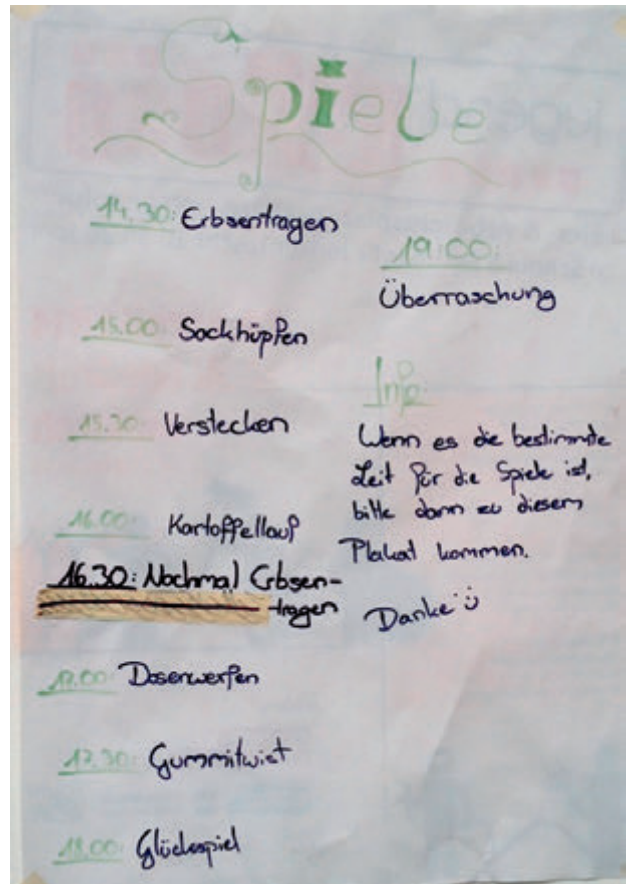 Spiele
14.30: Erbsentragen
15.00: Sackhüpfen
15.30: Verstecken
16.00: Kartoffellauf
16.30: Nochmal Erbsen-
-tragen
17.00: Dosenwerfen
17.30: Gummitwist
18.00: Glückspiel
19:00:
Überraschung
Info:
Wenn es die bestimmte
Zeit für die Spiele ist,
bitte dann zu diesem
Plakat kommen.
Danke